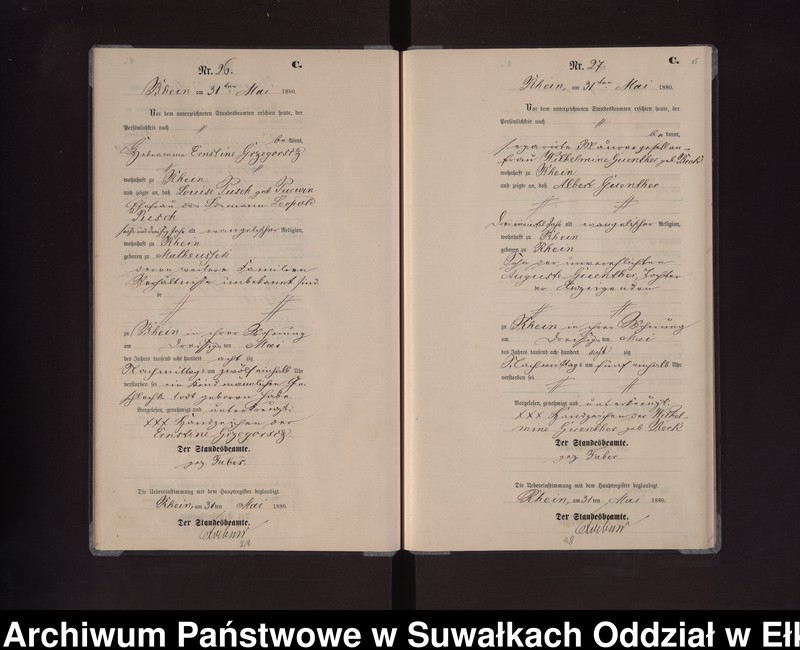 Nr. 26.
C.
Rhein am 31ten Mai 1880.
Vor dem unterzeichneten Standesbeamten erschien heute, der
Persönlichkeit nach
be kannt,
Hebeamme Ernstine Grzegorsz
wohnhaft zu Rhein
und zeigte an, daß Louise Pusch geb
Ehefrau des Leopold
alt evangelischer Religion,
wohnhaft zu Rhein
geboren zu
deren weitere Familien
Verhältnisse unbekannt sind.
zu Rhein in ihrer Wohnung
am Dreißig ten Mai
des Jahres tausend acht hundert acht zig
Nachmittags um zwölf einhalb Uhr
verstorben sei ein Kind männlichen Ge-
schlechts todt geboren habe
Vorgelesen, genehmigt und unterkreuzt.
XXX Handzeichen der
Ernstine Grzegorsz
Der Standesbeamte.
gez Faber.
Die Uebereinstimmung mit dem Hauptregister beglaubigt.
Rhein, am 31 ten Mai 1880.
Der Standesbeamte.
Nr. 27.
C.
Rhein, am 31ten Mai 1880.
Vor dem unterzeichneten Standesbeamten erschien heute, der
Persönlichkeit nach
be kannt,
separirte Maurergesellen-
frau Wilhelmine Guenther geb Kleck
wohnhaft zu Rhein
und zeigte an, daß Albert Guenther
Jahr alt evangelischer Religion,
wohnhaft zu Rhein
geboren zu Rhein
Sohn der unverehlichten
Auguste Guenther, Tochter
der Anzeigenden
zu Rhein in ihrer Wohnung
am Dreißig ten Mai
des Jahres tausend acht hundert acht zig
Nachmittags um fünf einhalb Uhr
verstorben sei
Vorgelesen, genehmigt und unterkreuzt.
XXX Handzeichen der Wilhel-
mine Guenther geb Kleck
Der Standesbeamte.
gez Faber
Die Uebereinstimmung mit dem Hauptregister beglaubigt.
Rhein, am 31 ten Mai 1880.
Der Standesbeamte.
28
Archiwum Państwowe w Suwałkach Oddział w Ełk